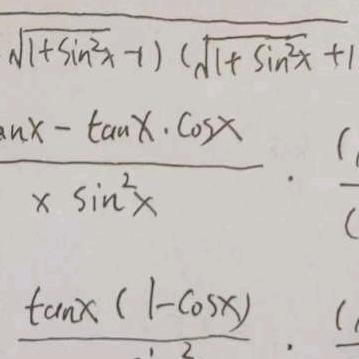 √(1+sin²x) -1) (√(1+ sin²x) +1
anx - tanx · cosx
x sin²x
tanx ( 1-cosx)